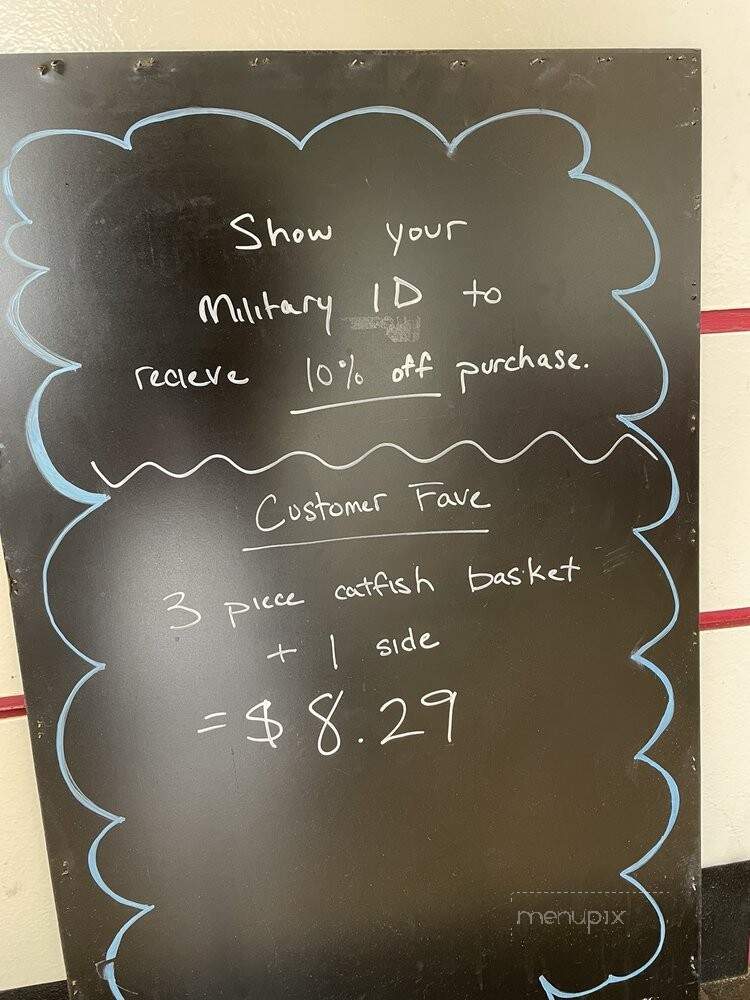 Show your
Military ID to
recieve 10% off purchase.
Customer Fave
3 piece catfish basket
+ 1 side
= $8.29
menupix